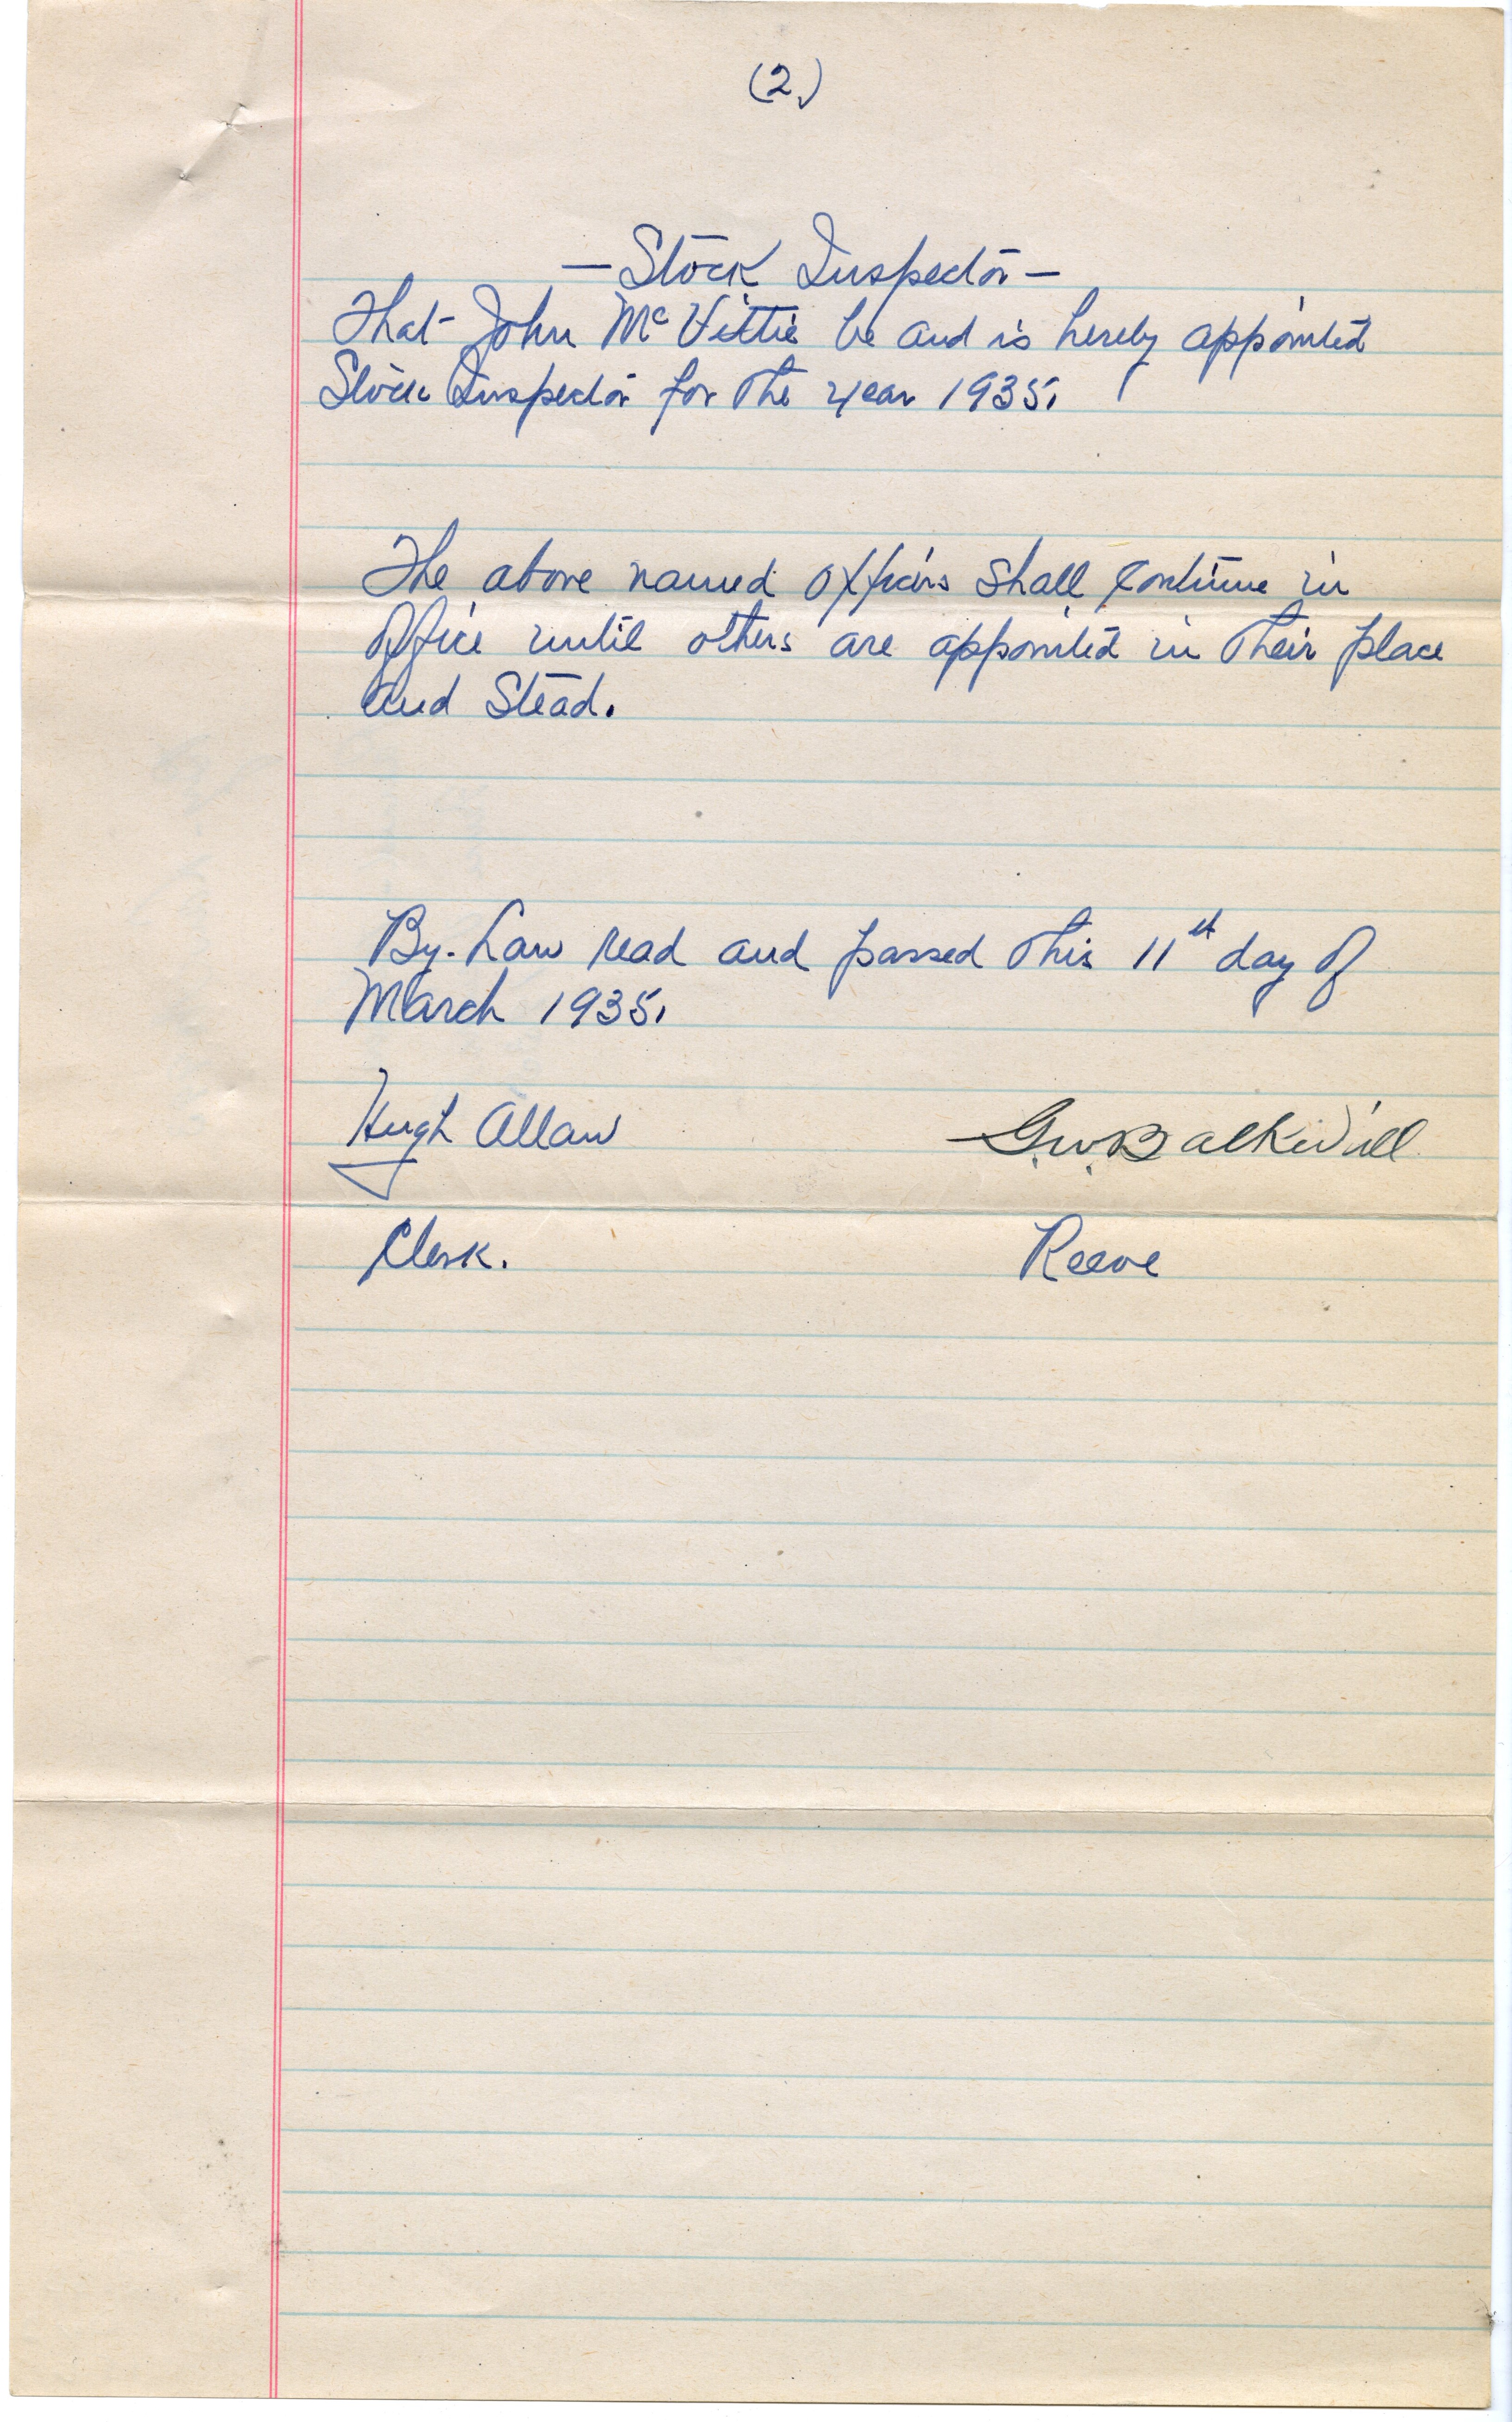 (2.)
— Stock Inspector —
That John McVittie be and is hereby appointed
Stock Inspector for the year 1935.
The above named officers shall continue in
office until others are appointed in their place
and Stead.
By-Law read and passed this 11th day of
March 1935.
Hugh Allan G.W. Balkwill
Clerk. Reeve